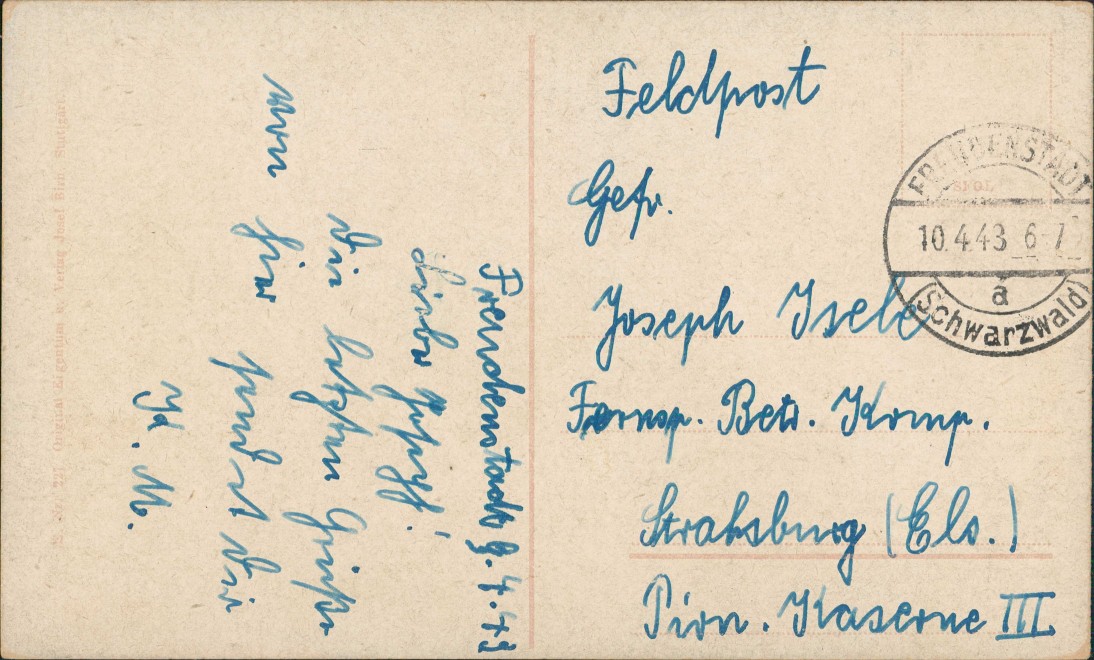 Freudenstadt 9.4.43
Lieber Joseph!
Die letzten Grüße
von hier sendet Dir
Ja. M.
Feldpost
Gefr.
Joseph Isele
Fernsp. Betr. Komp.
Straßburg (Els.)
Pion. Kaserne III
FREUDENSTADT
10.4.43 6-7
a
(Schwarzwald)
Original Eigentum u. Verlag Josef Stuttgart